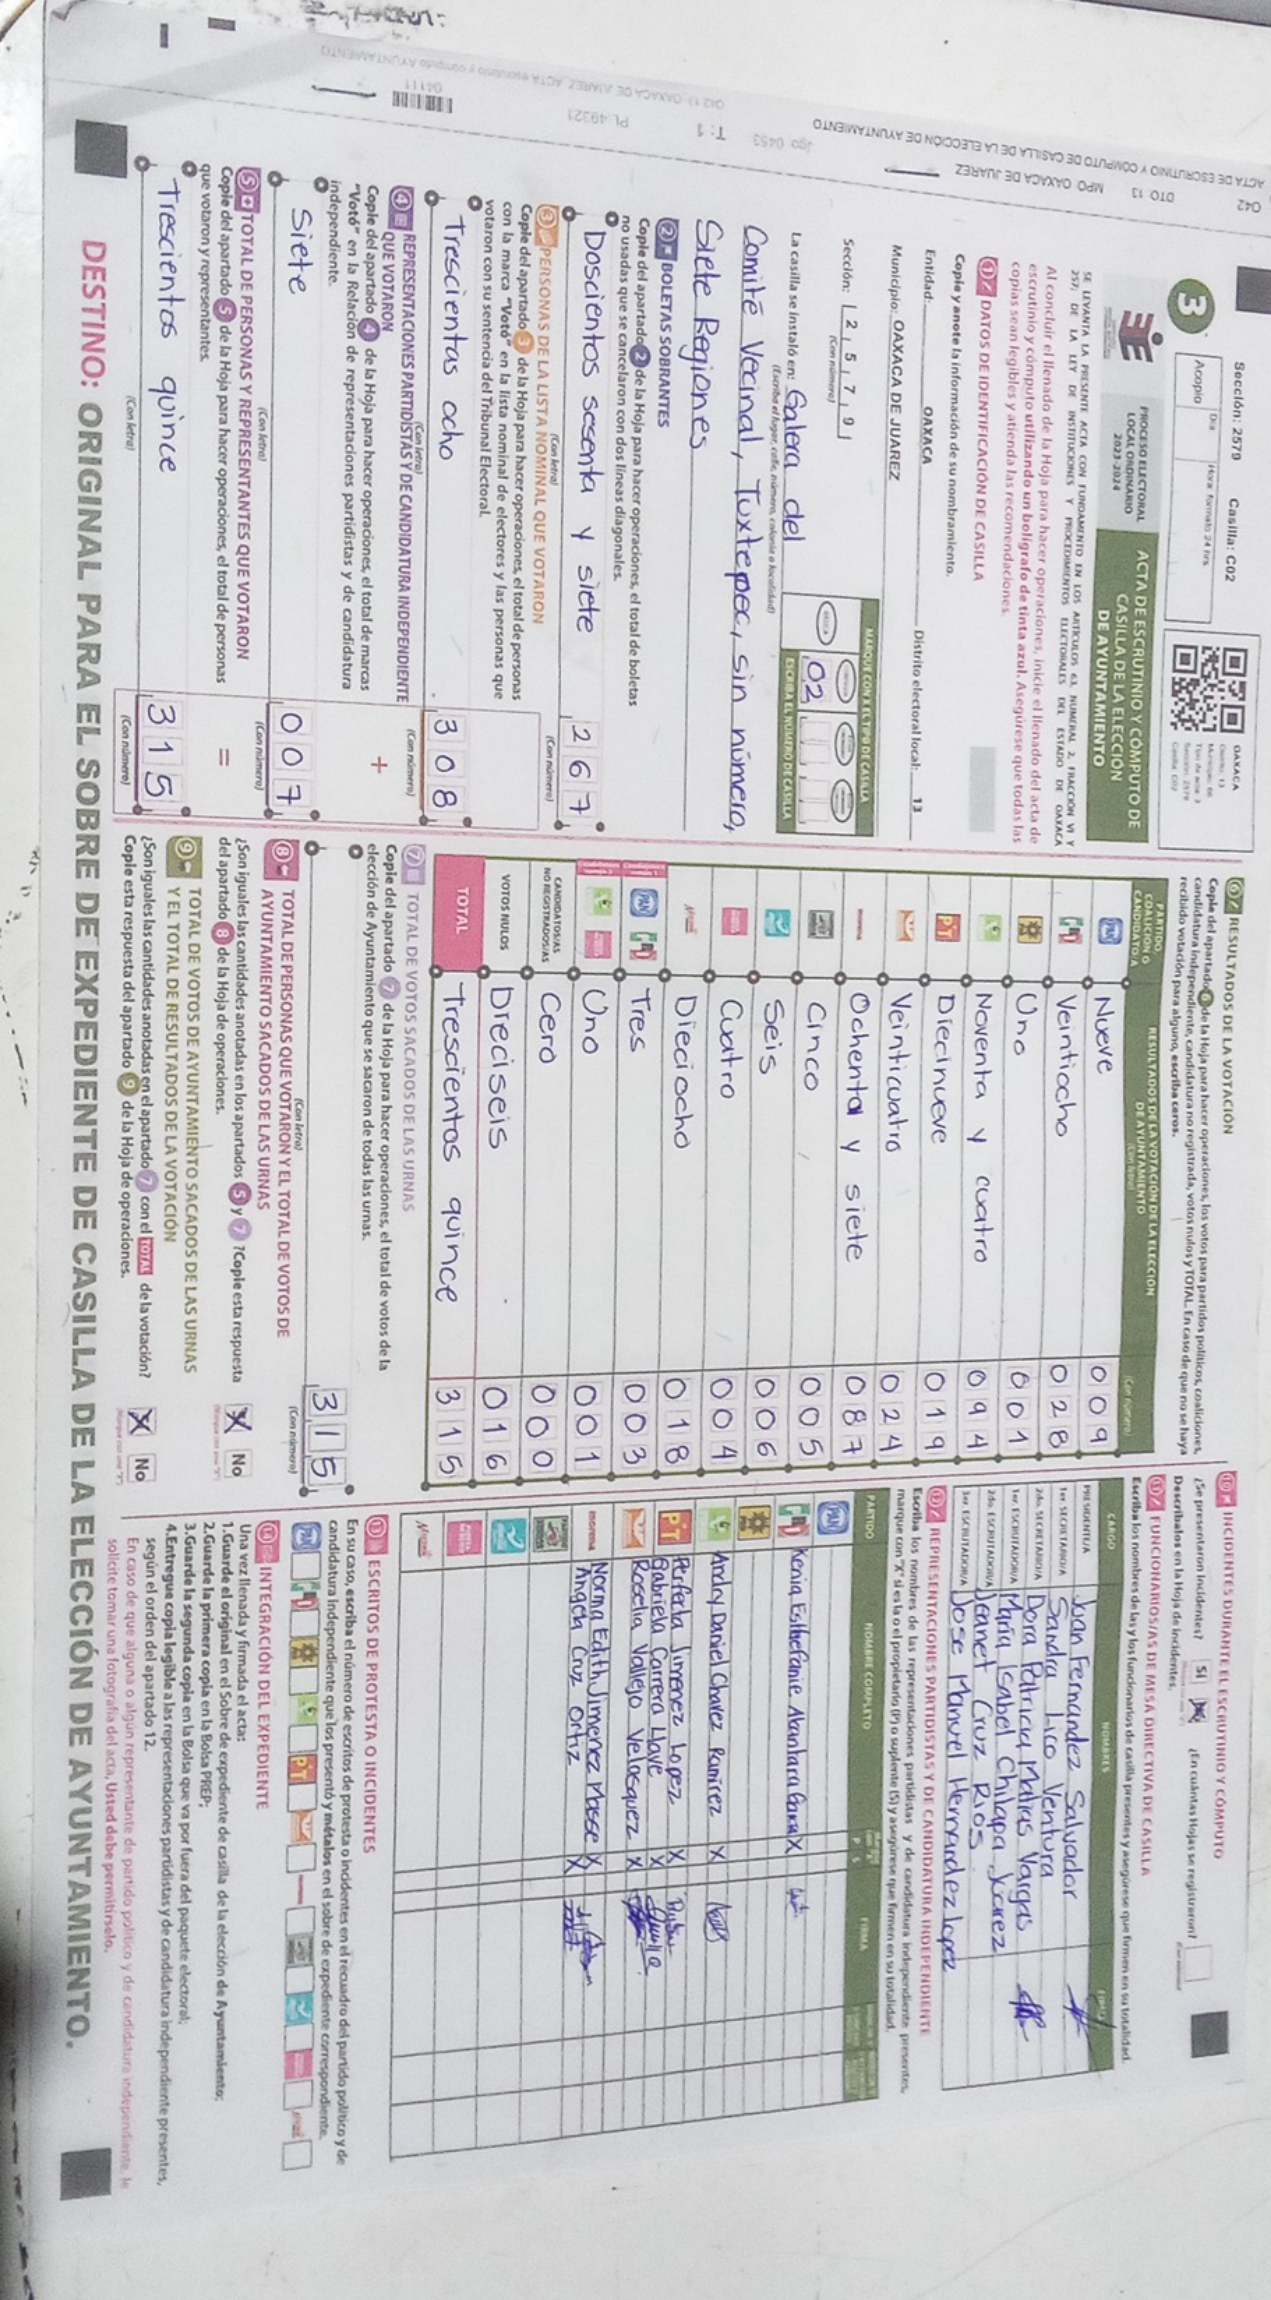 Sección: 2579 Casilla: C02
3
Acopio
Día
Hora formato 24 hrs
OAXACA
Distrito: 13
PROCESO ELECTORAL
LOCAL ORDINARIO
2023-2024
ACTA DE ESCRUTINIO Y CÓMPUTO DE
CASILLA DE LA ELECCIÓN
DE AYUNTAMIENTO
SE LEVANTA LA PRESENTE ACTA CON FUNDAMENTO EN LOS ARTÍCULOS 63, NUMERAL 2, FRACCIÓN VI Y
257, DE LA LEY DE INSTITUCIONES Y PROCEDIMIENTOS ELECTORALES DEL ESTADO DE OAXACA
Al concluir el llenado de la Hoja para hacer operaciones, inicie el llenado del acta de
escrutinio y cómputo utilizando un bolígrafo de tinta azul. Asegúrese que todas las
copias sean legibles y atienda las recomendaciones.
1 DATOS DE IDENTIFICACIÓN DE CASILLA
Copie y anote la información de su nombramiento.
Entidad: OAXACA Distrito electoral local: 13
Municipio: OAXACA DE JUAREZ
Sección: 2 5 7 9
(Con número)
MARQUE CON X EL TIPO DE CASILLA
02
ESCRIBA EL NÚMERO DE CASILLA
La casilla se instaló en: Galera del
(Escriba el lugar, calle, número, colonia o localidad)
Comité Vecinal, Tuxtepec, sin número,
Siete Regiones
2 BOLETAS SOBRANTES
Copie del apartado 2 de la Hoja para hacer operaciones, el total de boletas
no usadas que se cancelaron con dos líneas diagonales.
Doscientos sesenta y siete 267
(Con letra) (Con número)
3 PERSONAS DE LA LISTA NOMINAL QUE VOTARON
Copie del apartado 3 de la Hoja para hacer operaciones, el total de personas
con la marca "Votó" en la lista nominal de electores y las personas que
votaron con su sentencia del Tribunal Electoral.
Trescientas ocho 308
(Con letra) (Con número)
4 REPRESENTACIONES PARTIDISTAS Y DE CANDIDATURA INDEPENDIENTE
QUE VOTARON
+
Copie del apartado 4 de la Hoja para hacer operaciones, el total de marcas
"Votó" en la Relación de representaciones partidistas y de candidatura
independiente.
Siete 007
(Con letra) (Con número)
5 TOTAL DE PERSONAS Y REPRESENTANTES QUE VOTARON
=
Copie del apartado 5 de la Hoja para hacer operaciones, el total de personas
que votaron y representantes.
Trescientos quince 315
(Con letra) (Con número)
6 RESULTADOS DE LA VOTACIÓN
Copie del apartado 6 de la Hoja para hacer operaciones, los votos para partidos políticos, coaliciones,
candidatura independiente, candidatura no registrada, votos nulos y TOTAL. En caso de que no se haya
recibido votación para alguno, escriba ceros.
PARTIDO,
COALICIÓN O
CANDIDATO/A
RESULTADOS DE LA VOTACIÓN DE LA ELECCIÓN
DE AYUNTAMIENTO
(Con letra) (Con número)
PAN Nueve 009
PRI Veintiocho 028
Uno 001
Noventa y cuatro 094
PT Diecinueve 019
Veinticuatro 024
morena Ochenta y siete 087
Cinco 005
Seis 006
Cuatro 004
Dieciocho 018
PAN PRI Tres 003
Uno 001
CANDIDATOS/AS
NO REGISTRADOS/AS Cero 000
VOTOS NULOS Dieciseis 016
TOTAL Trescientos quince 315
7 TOTAL DE VOTOS SACADOS DE LAS URNAS
Copie del apartado 7 de la Hoja para hacer operaciones, el total de votos de la
elección de Ayuntamiento que se sacaron de todas las urnas.
315
(Con letra) (Con número)
8 TOTAL DE PERSONAS QUE VOTARON Y EL TOTAL DE VOTOS DE
AYUNTAMIENTO SACADOS DE LAS URNAS
¿Son iguales las cantidades anotadas en los apartados 5 y 7 ? Copie esta respuesta
del apartado 8 de la Hoja de operaciones.
X No
9 TOTAL DE VOTOS DE AYUNTAMIENTO SACADOS DE LAS URNAS
Y EL TOTAL DE RESULTADOS DE LA VOTACIÓN
¿Son iguales las cantidades anotadas en el apartado 7 con el TOTAL de la votación?
Copie esta respuesta del apartado 9 de la Hoja de operaciones.
X No
10 INCIDENTES DURANTE EL ESCRUTINIO Y CÓMPUTO
¿Se presentaron incidentes? Sí X ¿En cuántas Hojas se registraron?
Descríbalos en la Hoja de incidentes.
11 FUNCIONARIOS/AS DE MESA DIRECTIVA DE CASILLA
Escriba los nombres de las y los funcionarios de casilla presentes y asegúrese que firmen en su totalidad.
CARGO NOMBRES FIRMA
PRESIDENTE/A Juan Fernandez Salvador
1er. SECRETARIO/A Sandra Lico Ventura
2do. SECRETARIO/A Dora Patricia Matias Vargas
1er. ESCRUTADOR/A María Isabel Chilapa Juarez
2do. ESCRUTADOR/A Jeanet Cruz Rios
3er. ESCRUTADOR/A Jose Manuel Hernandez Lopez
12 REPRESENTACIONES PARTIDISTAS Y DE CANDIDATURA INDEPENDIENTE
Escriba los nombres de las representaciones partidistas y de candidatura independiente presentes,
marque con "X" si es la o el propietario (P) o suplente (S) y asegúrese que firmen en su totalidad.
PARTIDO NOMBRE COMPLETO P S FIRMA
PAN
PRI Kenia Esthefanie Alcantara X
Andry Daniel Chavez Ramirez X
PT Perfecta Jimenez Lopez X
Gabriela Carrera Llave X
Roselia Vallejo Velasquez X
morena Norma Edith Jimenez Masse X
Angela Cruz Ortiz X
13 ESCRITOS DE PROTESTA O INCIDENTES
En su caso, escriba el número de escritos de protesta o incidentes en el recuadro del partido político y de
candidatura independiente que los presentó y métalos en el sobre de expediente correspondiente.
PAN PRI PT
14 INTEGRACIÓN DEL EXPEDIENTE
Una vez llenada y firmada el acta:
1.Guarde el original en el Sobre de expediente de casilla de la elección de Ayuntamiento;
2.Guarde la primera copia en la Bolsa PREP;
3.Guarde la segunda copia en la Bolsa que va por fuera del paquete electoral;
4.Entregue copia legible a las representaciones partidistas y de candidatura independiente presentes,
según el orden del apartado 12.
En caso de que alguna o algún representante de partido político y de candidatura independiente le
solicite tomar una fotografía del acta, Usted debe permitírselo.
DESTINO: ORIGINAL PARA EL SOBRE DE EXPEDIENTE DE CASILLA DE LA ELECCIÓN DE AYUNTAMIENTO.
ACTA DE ESCRUTINIO Y CÓMPUTO DE CASILLA DE LA ELECCIÓN DE AYUNTAMIENTO
042 DTO 13 MPO OAXACA DE JUAREZ
T: 1